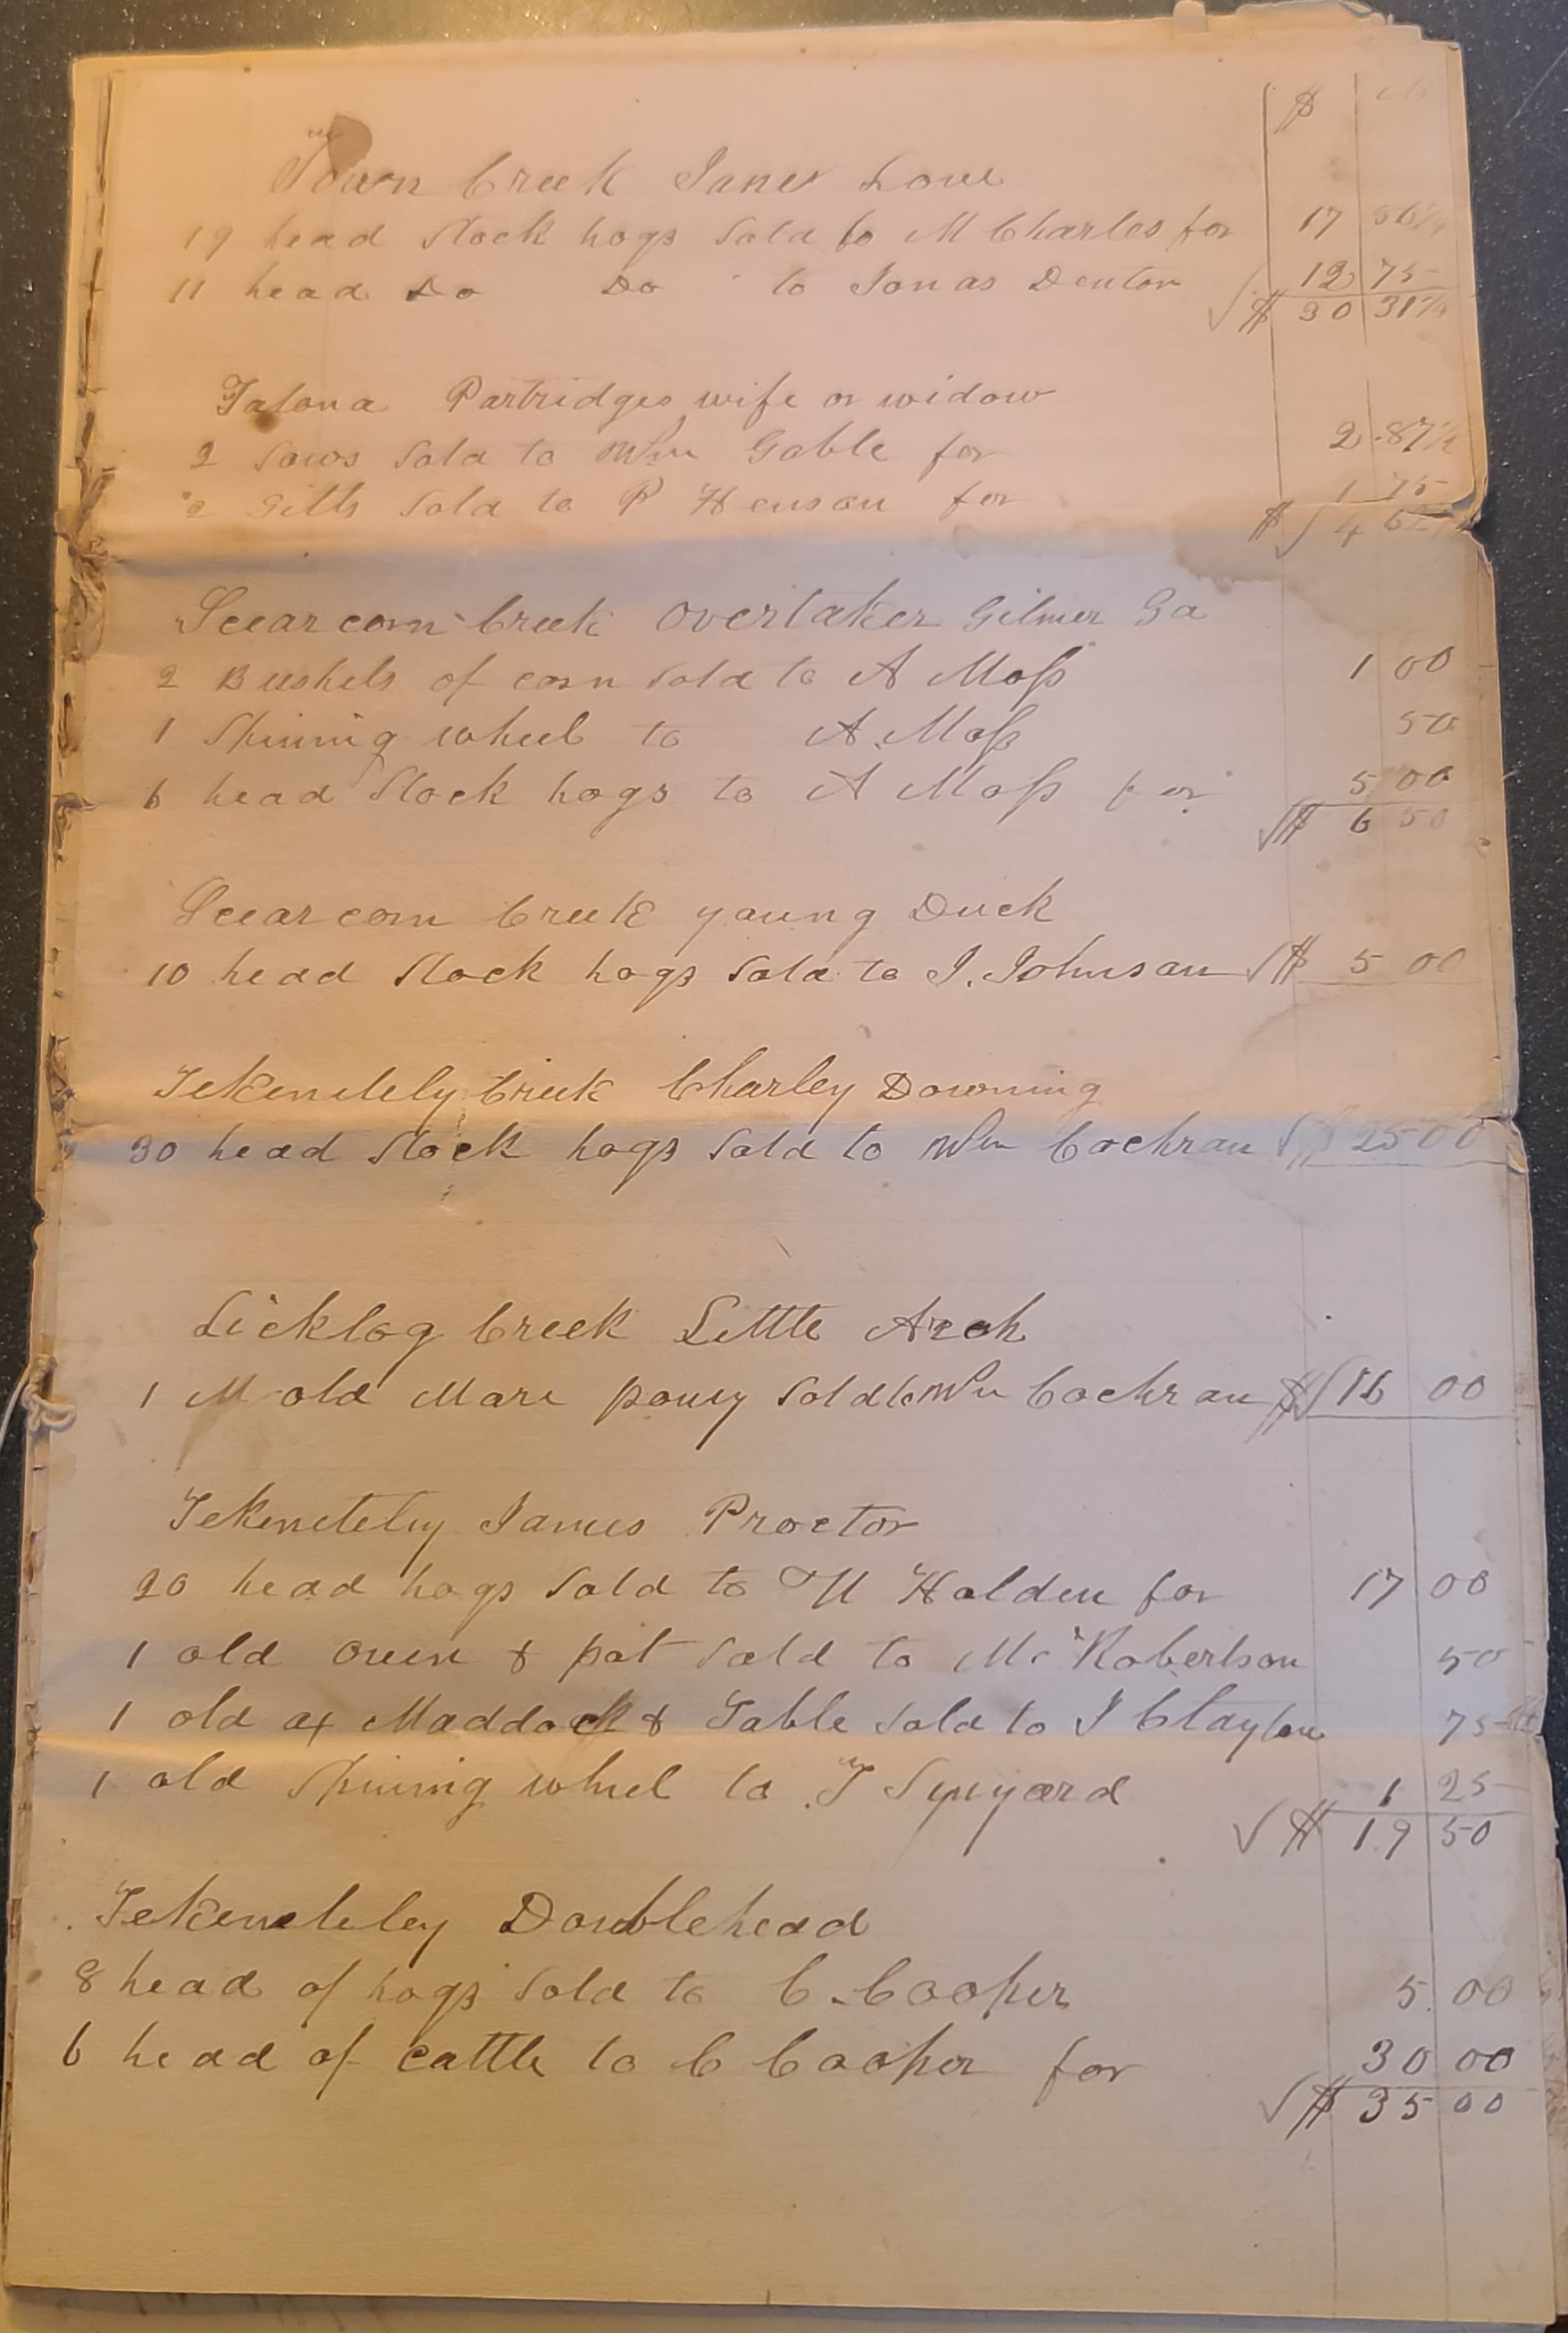 $
Town Creek Janes Love
19 head Stock hogs Sold to M Charles for 17 56¼
11 head Do Do to Jonas Denton 12 75
$ 30 31¼
Talona Partridges wife or widow
2 Sows Sold to Wm Gable for 2.87½
2 Gilts Sold to P Henson for 1 75
$ 4 62½
Scearcorn Creek Overtaker Gilmer Ga
2 Bushels of corn Sold to A Moss 1 00
1 Spinnig wheel to A. Moss 50
6 head Stock hogs to A Moss for 5 00
$ 6 50
Scearcorn Creek young Duck
10 head Stock hogs Sold to J. Johnson $ 5 00
Tekenetely Creek Charley Downing
30 head Stock hogs Sold to Wm Cochran $ 25 00
Licklog Creek Little Arch
1 M old Mare poney Sold to Wm Cochran $ 16 00
Tekenetely James Proctor
20 head hogs Sold to Holden for 17 00
1 old oven & pot Sold to Mc Robertson 50
1 old ax Maddock & Table Sold to J Clayton 75
1 old Spinnig wheel to T Synyard 1 25
$ 19 50
Tekenetely Doublehead
8 head of hogs Sold to C. Cooper 5.00
6 head of cattle to C Cooper for 30 00
$ 35 00